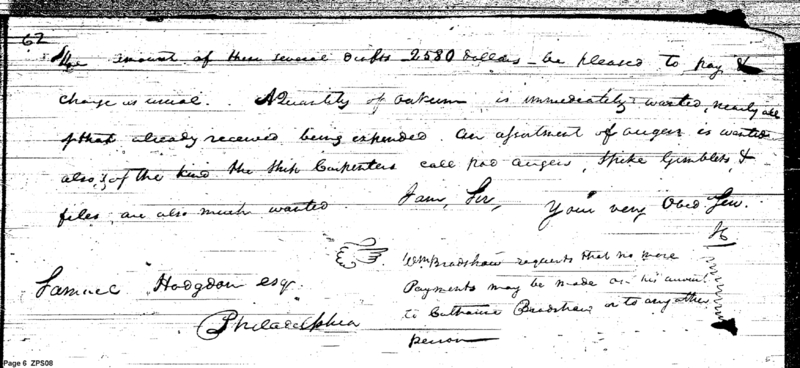 62
The amount of these several drafts 2580 dollars – be pleased to pay &
charge as usual. A Quantity of Oakum is immediately wanted, nearly all
of that already received being expended. An assortment of augers is wanted
also, of the kind the Ship Carpenters call pod augers, Spike Gimblets, &
files, are also much wanted. I am, Sir, Your very Obed Serv.
Wm Bradshaw requests that no more
Payments may be made on his account
to Catharine Bradshaw or to any other
person
Samuel Hodgdon esqr
Philadelphia
Page 6 ZPS08